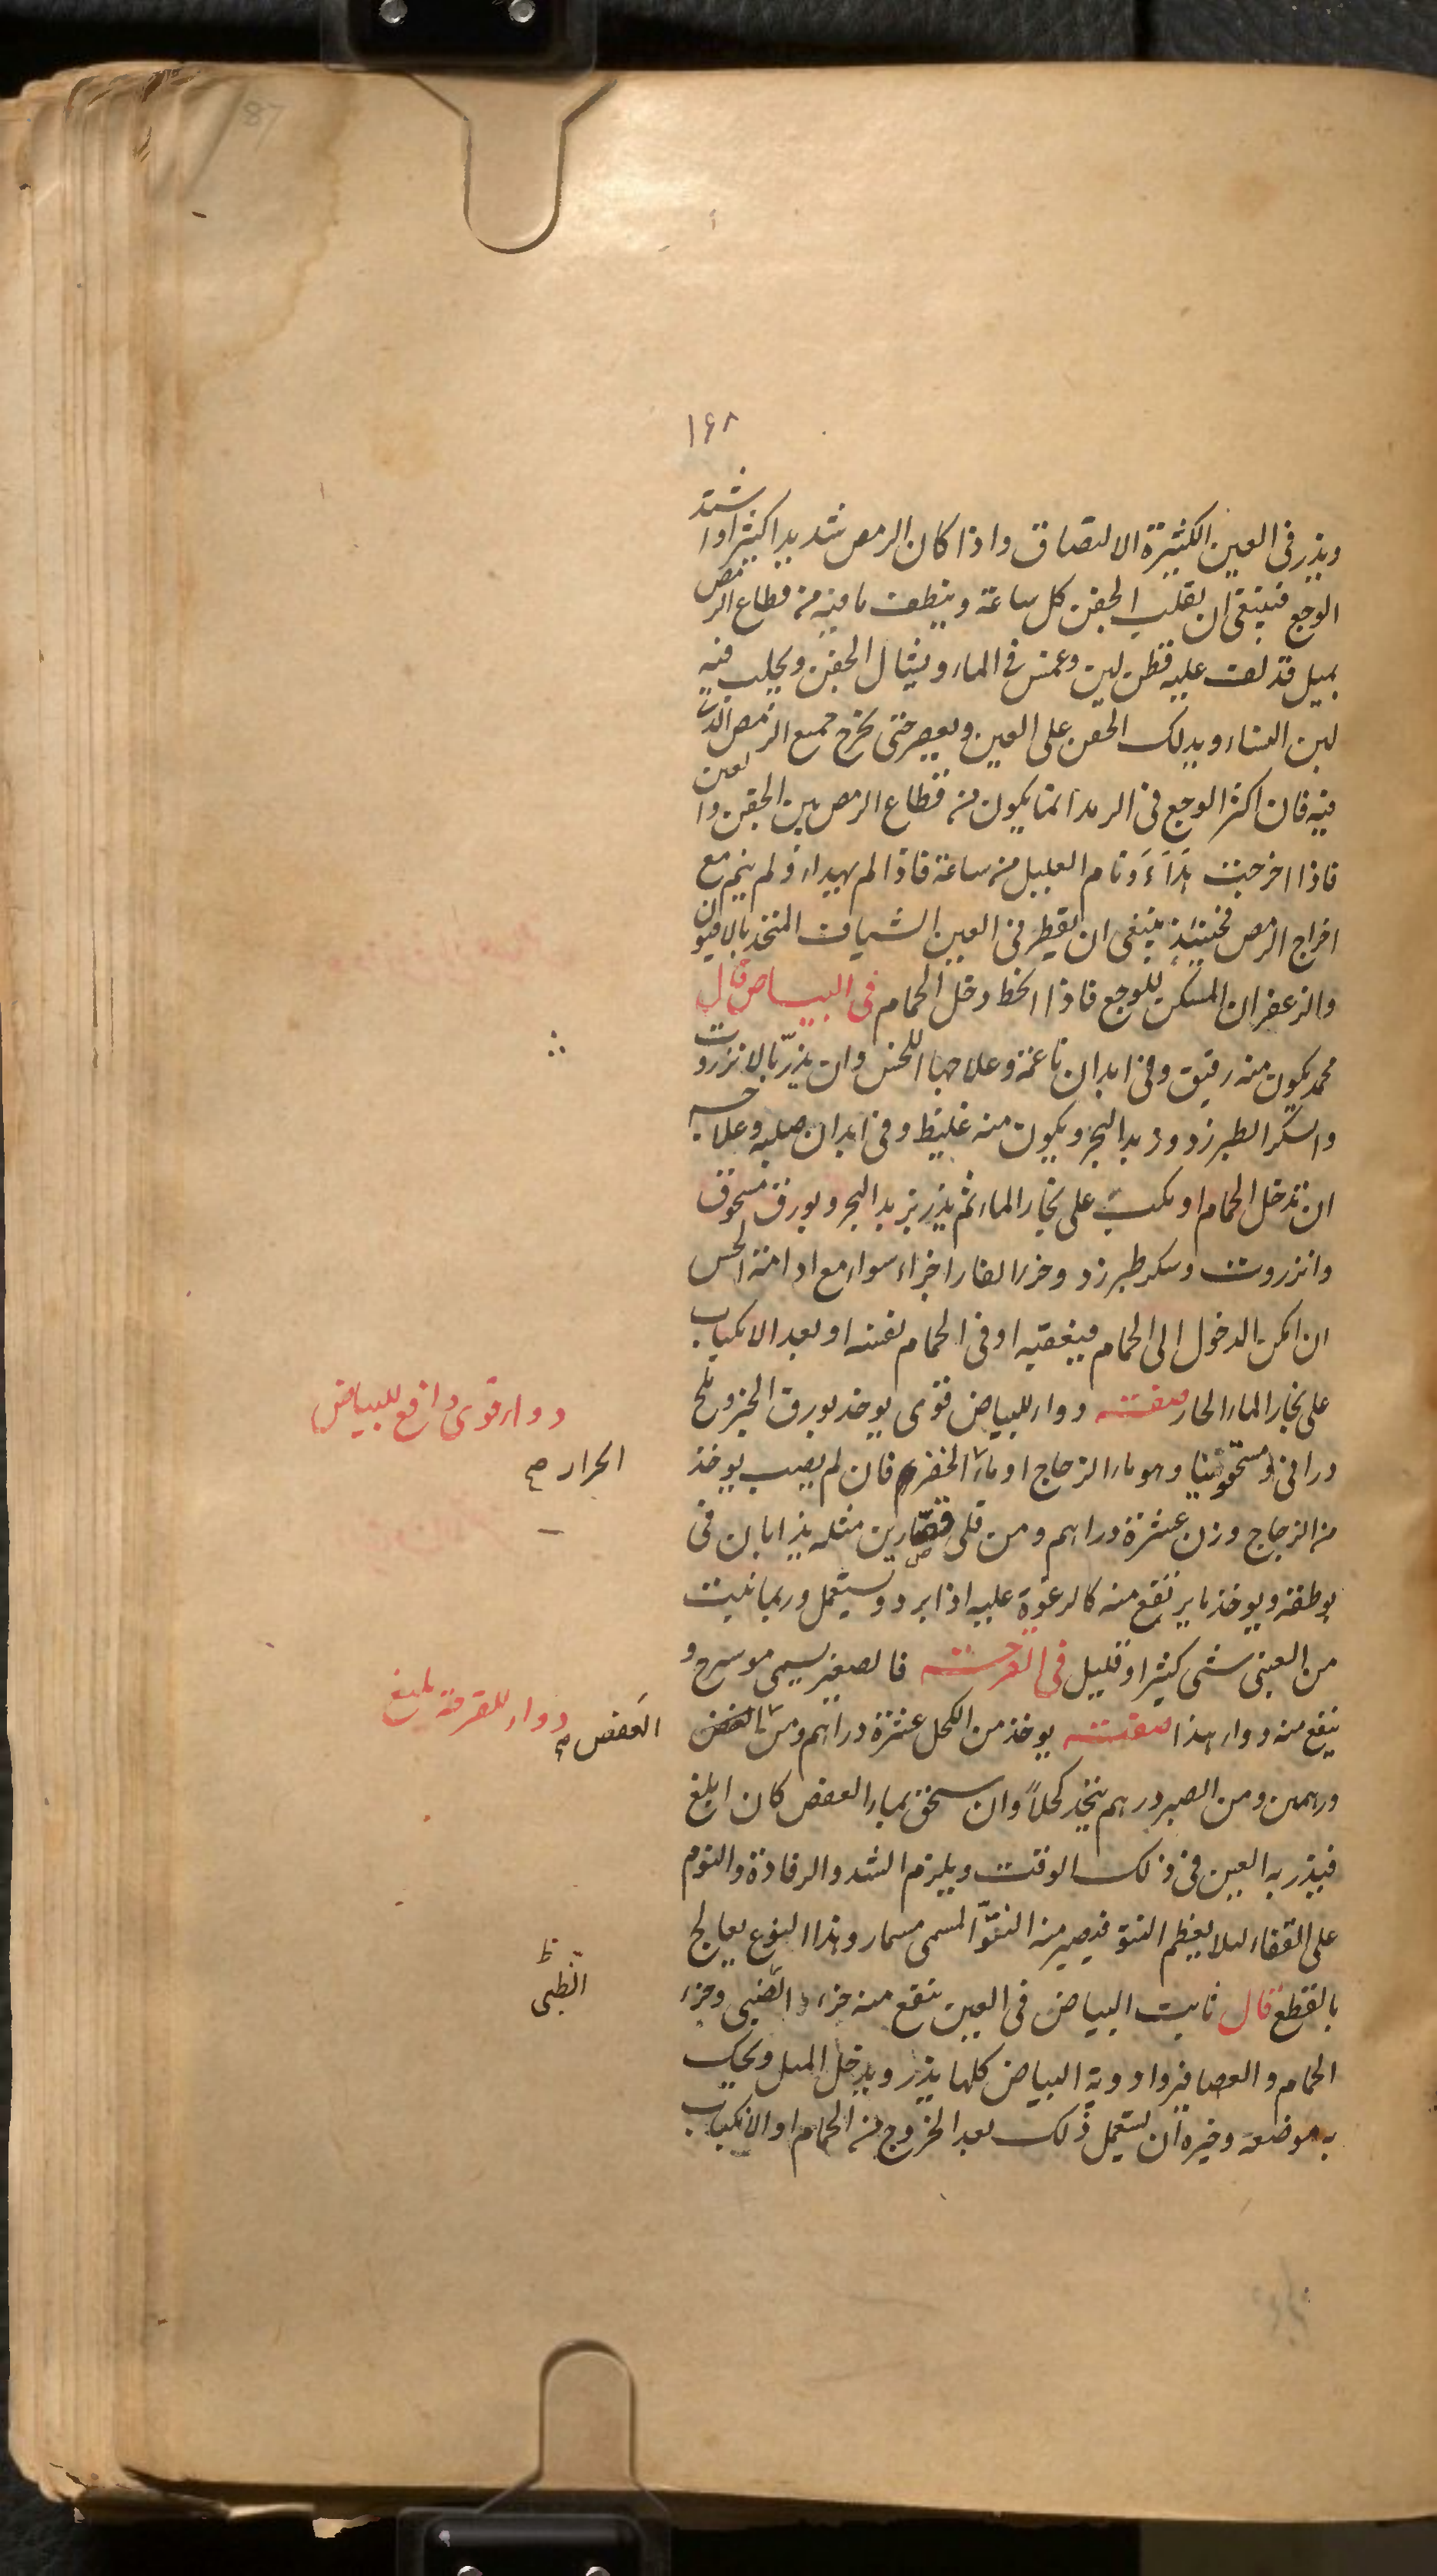 87
١٦٨
ويذر فى العين الكثيرة الالتصاق واذا كان الرمص شديدا كثيرا واشتد
الوجع فينبغى ان يقلب الجفن كل ساعة وينظف ما فيه من قطاع الرمص
بميل قد لف عليه قطن لين وغمس فى الماء ويشال الجفن ويحلب فيه
لبن النساء ويدلك الجفن على العين ويعصر حتى يخرج جميع الرمص الذى
فيه فان اكثر الوجع فى الرمد انما يكون من قطاع الرمص بين الجفن والعين
فاذا اخرجت هذاء ونام العليل من ساعة فاذا لم يهدأ ولم ينم مع
اخراج الرمص فحينئذ ينبغى ان يقطر فى العين الشياف المتخذ بالافيون
والزعفران المسكن للوجع فاذا انحط دخل الحمام فى البياض قال
محمد يكون منه رقيق وفى ابدان ناعمة وعلاجها اللحس وان يذر بالانزروت
والسكر الطبرزد وزبد البحر ويكون منه غليظ وفى ابدان صلبه وعلاجه
ان تدخل الحمام او يكب على بخار الماء ثم يذر بزبد البحر وبورق مسحوق
وانزروت وسكر طبرزد وخرا الفار اجزاء سواء مع ادامة الحس
ان امكن الدخول الى الحمام فبعقبه او فى الحمام نفسه او بعد الانكباب
على بخار الماء الحار صفته دواء للبياض قوى يوخذ بورق الخبز وملح
درانى ومسحقونيا وهو ماء الزجاج او ماء الخضر فان لم يصب يوخذ
من الزجاج وزن عشرة دراهم ومن قلى قصّارين مثله يذابان فى
بوطقة ويوخذ ما يرتفع منه كالرغوة عليه اذا برد ويستعمل وربما نبت
من العينى شى كثير او قليل فى القرحته فالصغير يسمى مورسرج و
ينفع منه دواء هذا صفته يوخذ من الكحل عشرة دراهم ومن العفص
درهمين ومن الصبر درهم يتخذ كحلاً وان سحق بماء العفص كان ابلغ
فيذر به العين فى ذلك الوقت ويلزم الشد والرفادة والنوم
على القفاء لئلا يعظم النتو فيصير منه النتوّ المسمى مسمار وهذا النوع يعالج
بالقطع قال ثابت البياض فى العين ينفع منه خرء الضبى وخرء
الحمام والعصافير وادوية البياض كلها يذر ويدخل الميل ويحك
به موضعه وخيره ان يستعمل ذلك بعد الخروج من الحمام او الانكباب
دواء قوى دافع للبياض
الحرار صح
دواء للقرحة بليغ
العفص صح
ظ
الظبى